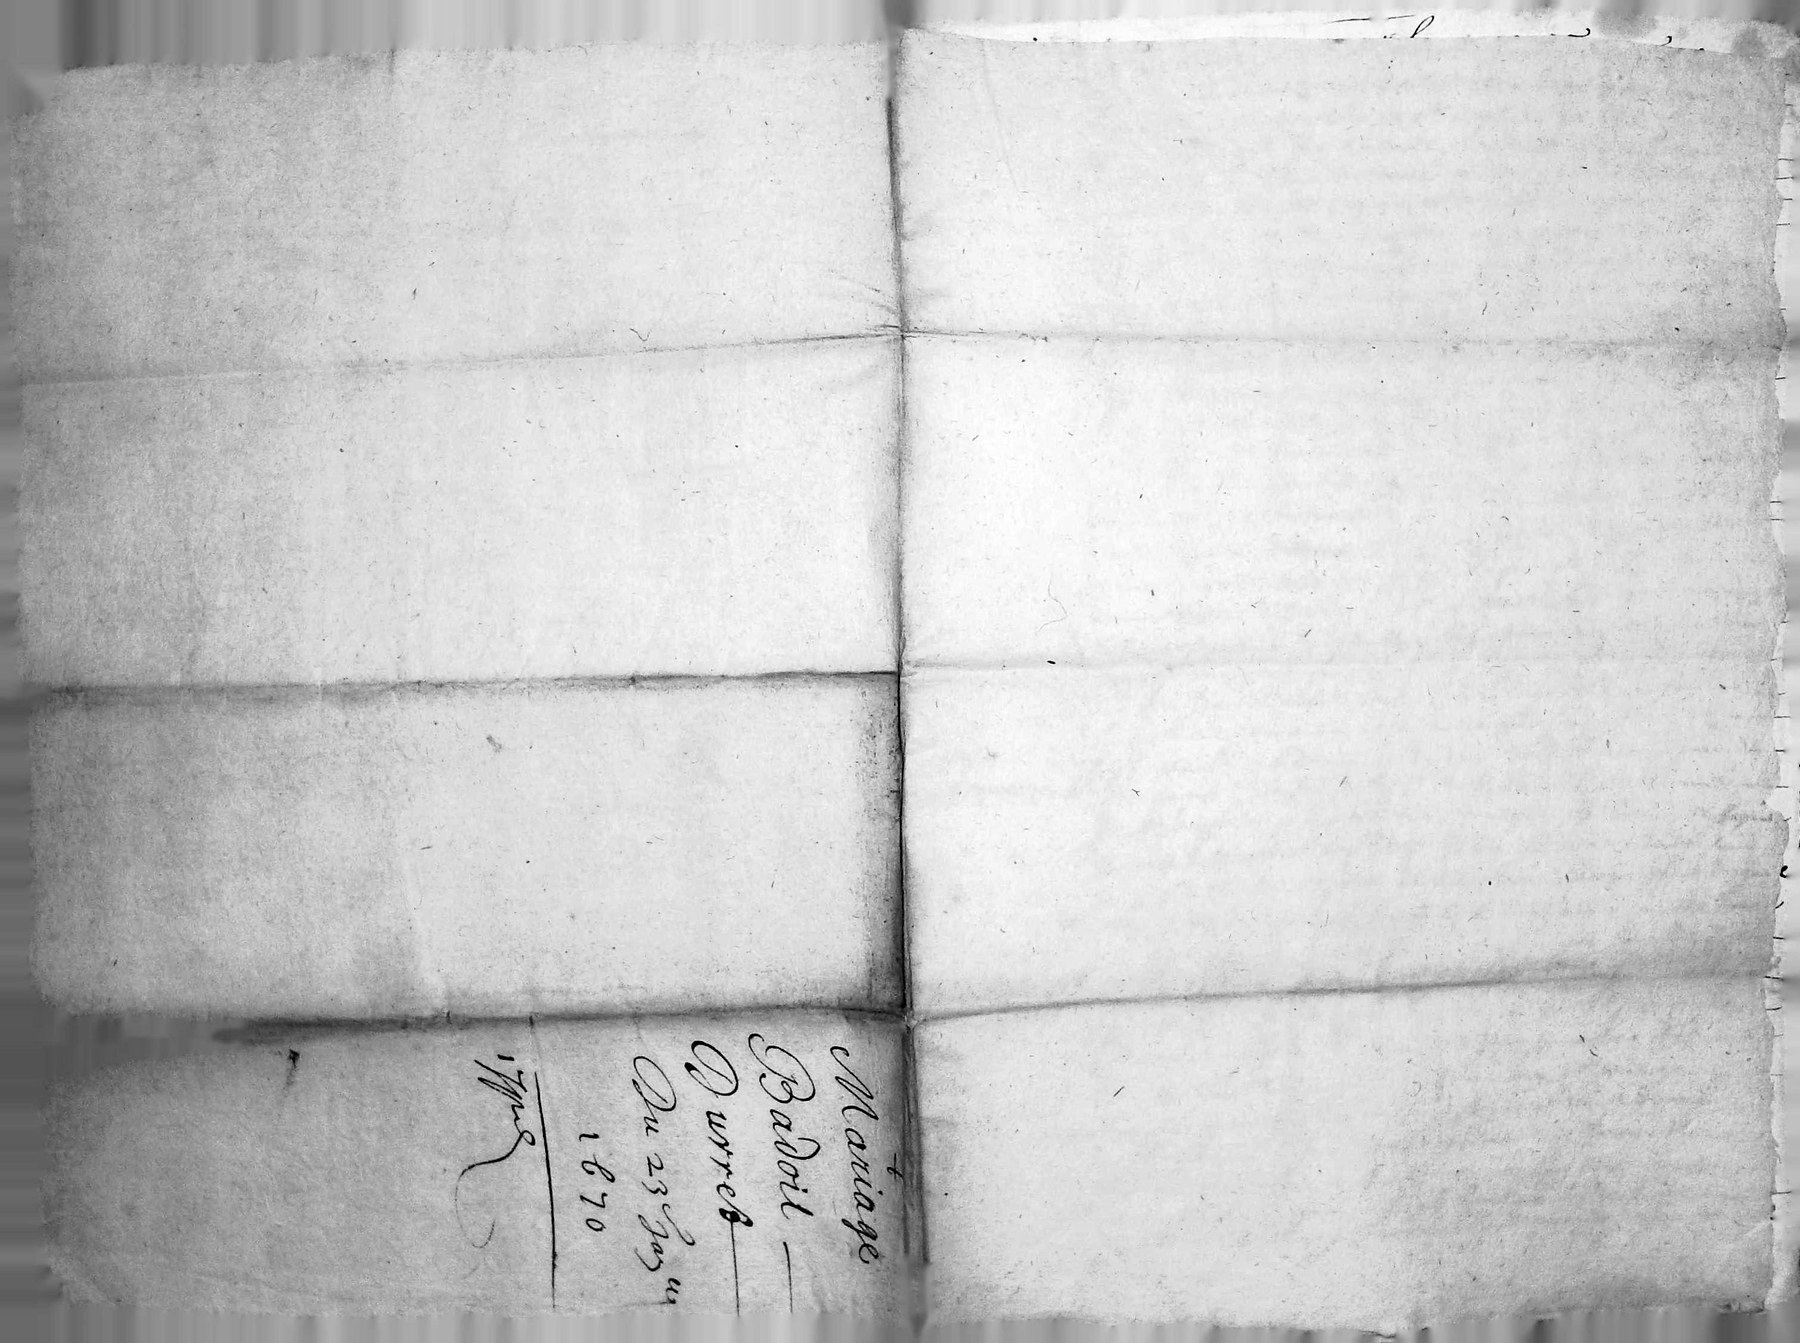 Mariage
Badoil —
Durret
Du 23 Janer
1670